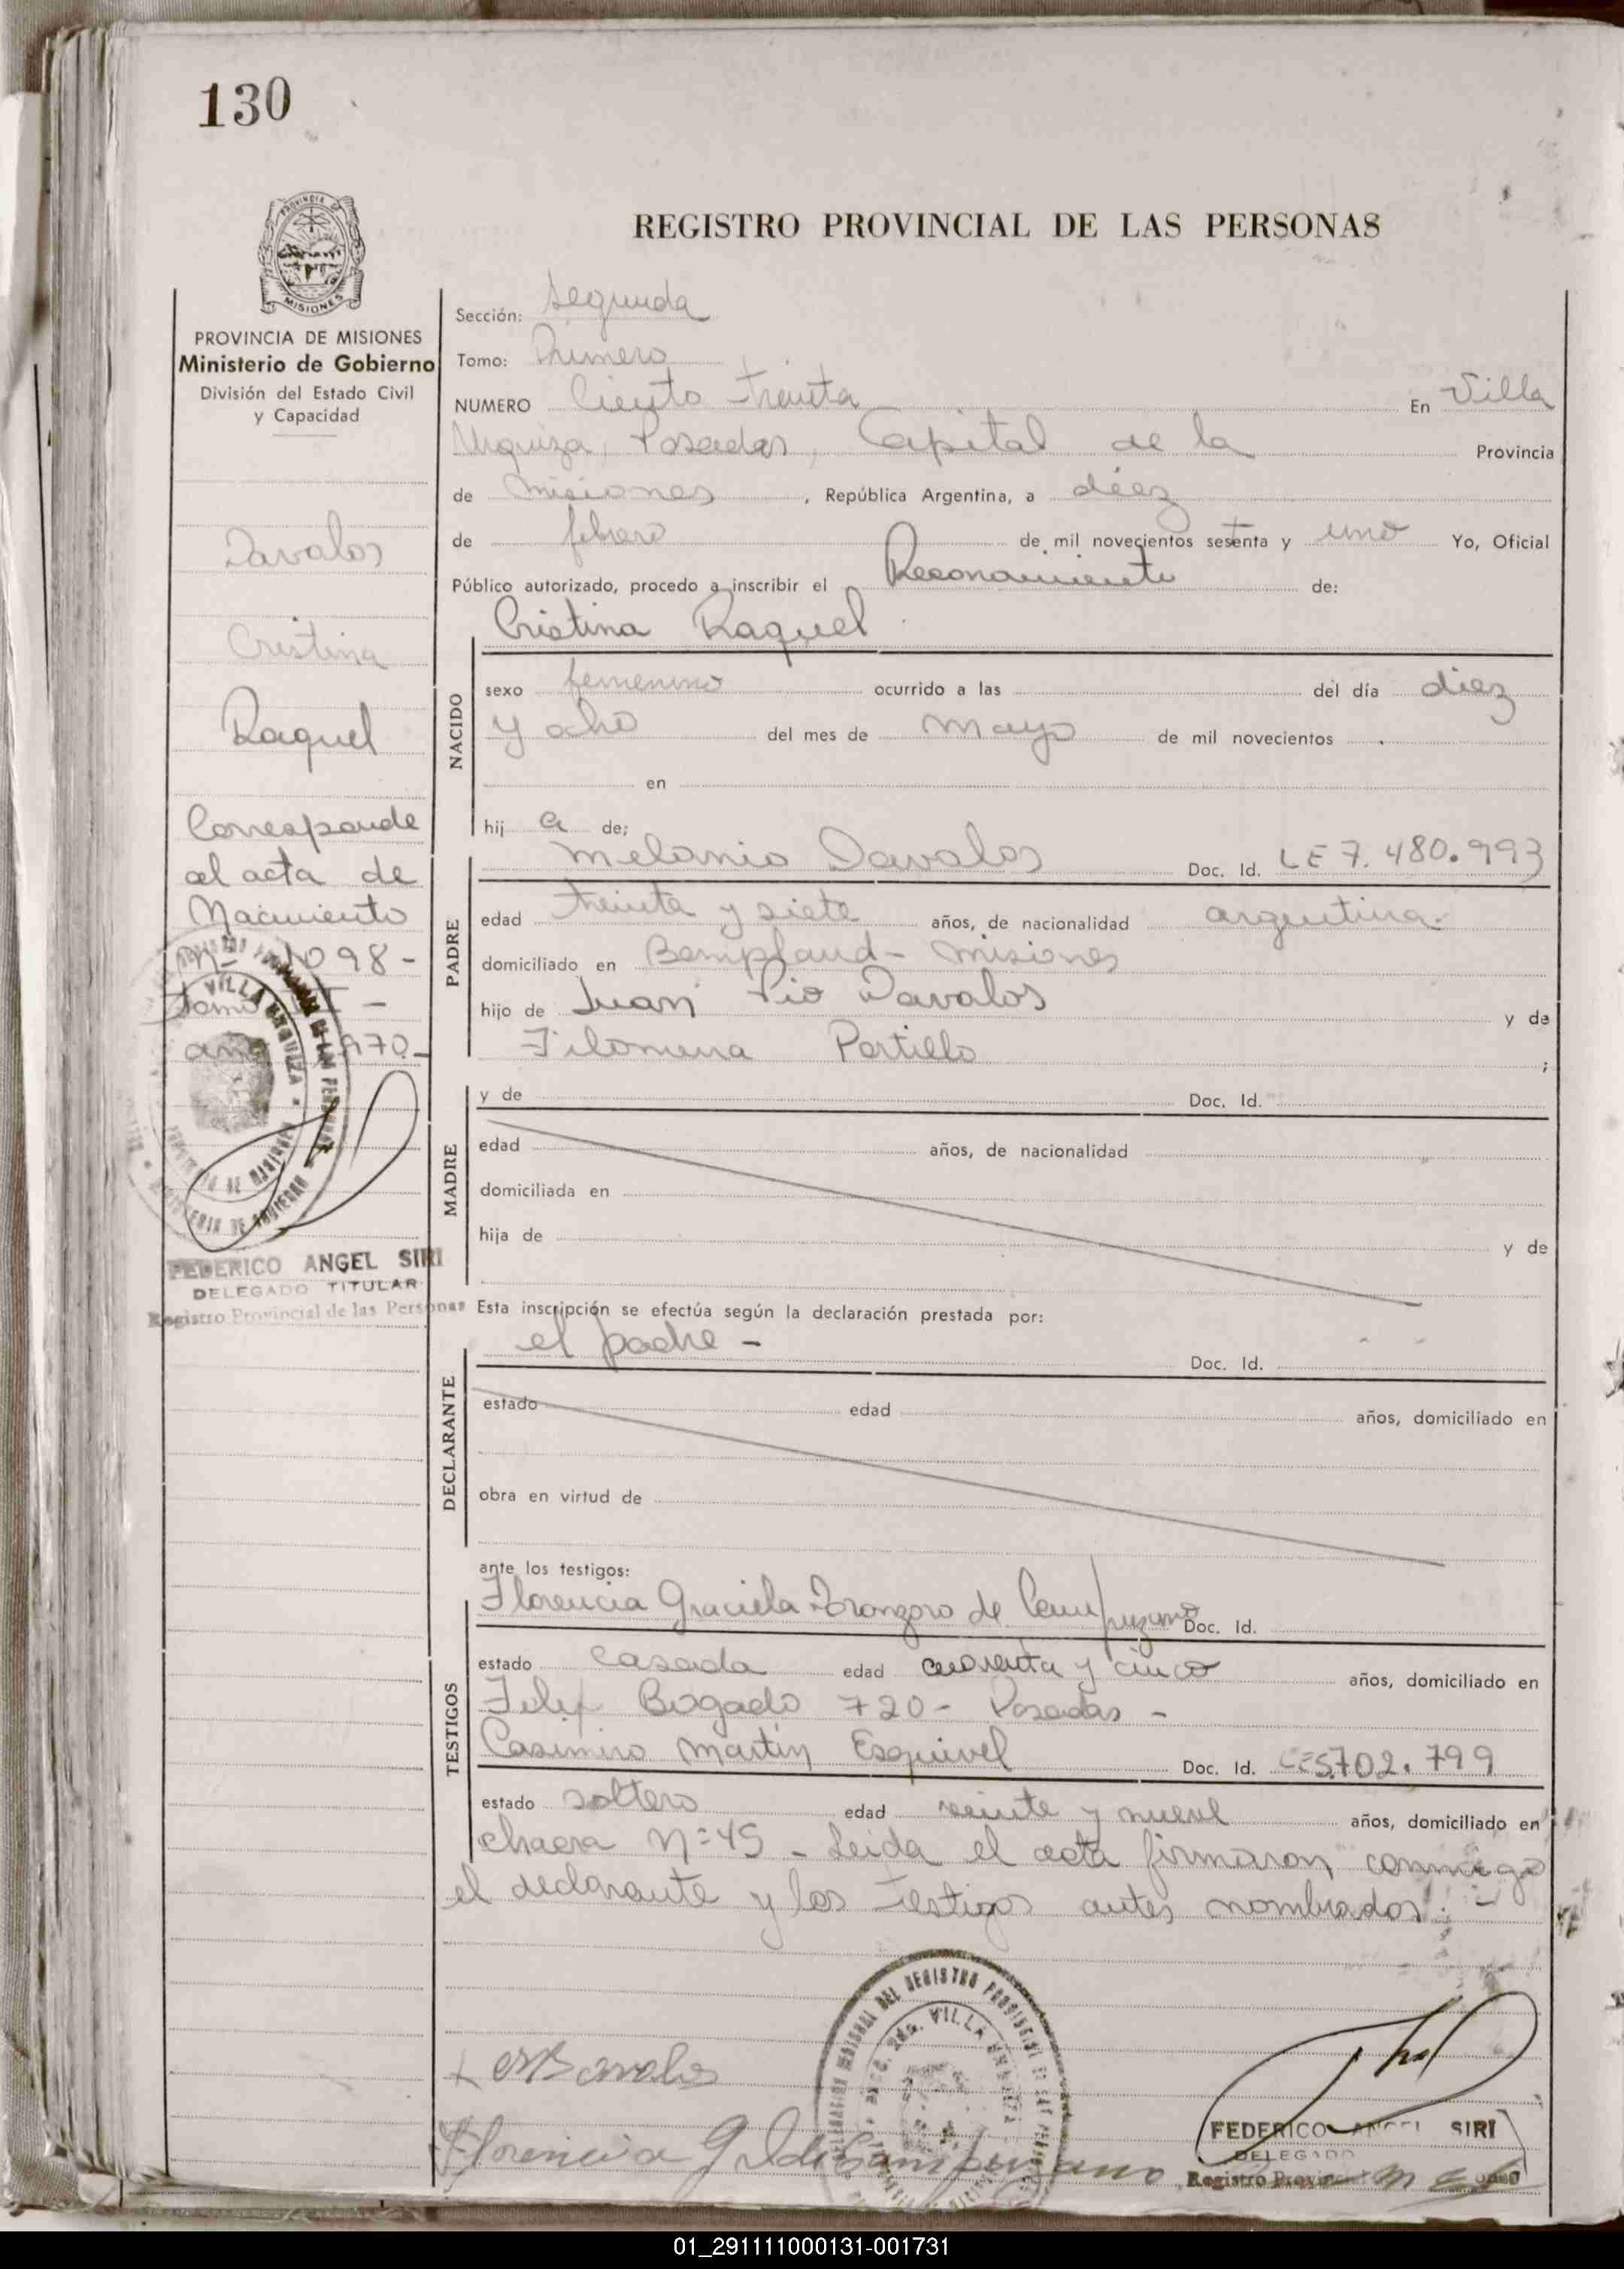 130
REGISTRO PROVINCIAL DE LAS PERSONAS
PROVINCIA DE MISIONES
Ministerio de Gobierno
División del Estado Civil
y Capacidad
Davalos
Cristina
Raquel
Corresponde
al acta de
Nacimiento
Nº 1098-
tomo
año 1970-
VILLA URQUIZA
FEDERICO ANGEL SIRI
DELEGADO TITULAR
Registro Provincial de las Personas
Sección: Segunda
Tomo: Primero
NUMERO Ciento treinta En Villa
Urquiza, Posadas, Capital de la Provincia
de misiones, República Argentina, a diez
de febrero de mil novecientos setenta y uno Yo, Oficial
Público autorizado, procedo a inscribir el Reconamiento de:
Cristina Raquel
NACIDO
sexo femenino ocurrido a las del día diez
y ocho del mes de mayo de mil novecientos
en
hij a de;
PADRE
Melanio Davalos Doc. Id. LE 7.480.993
edad treinta y siete años, de nacionalidad argentina-
domiciliado en Bompland - misiones
hijo de Juan Pio Davalos y de
Filomena Portillo ;
MADRE
y de Doc. Id.
edad años, de nacionalidad
domiciliada en
hija de y de
Esta inscripción se efectúa según la declaración prestada por:
el padre - Doc. Id.
DECLARANTE
estado edad años, domiciliado en
obra en virtud de
ante los testigos:
TESTIGOS
Florencia Graciela de Campuzano Doc. Id.
estado casada edad cuarenta y cinco años, domiciliado en
Felix Bogado 720 - Posadas -
Casimiro Martin Esquivel Doc. Id. LE 5.702.799
estado soltero edad veinte y nueve años, domiciliado en
chacra Nº 45 - Leida el acta firmaron conmigo
el declarante y los testigos antes nombrados. -
Florencia G D de Campuzano
FEDERICO ANGEL SIRI
DELEGADO
Registro Provin
01_291111000131-001731